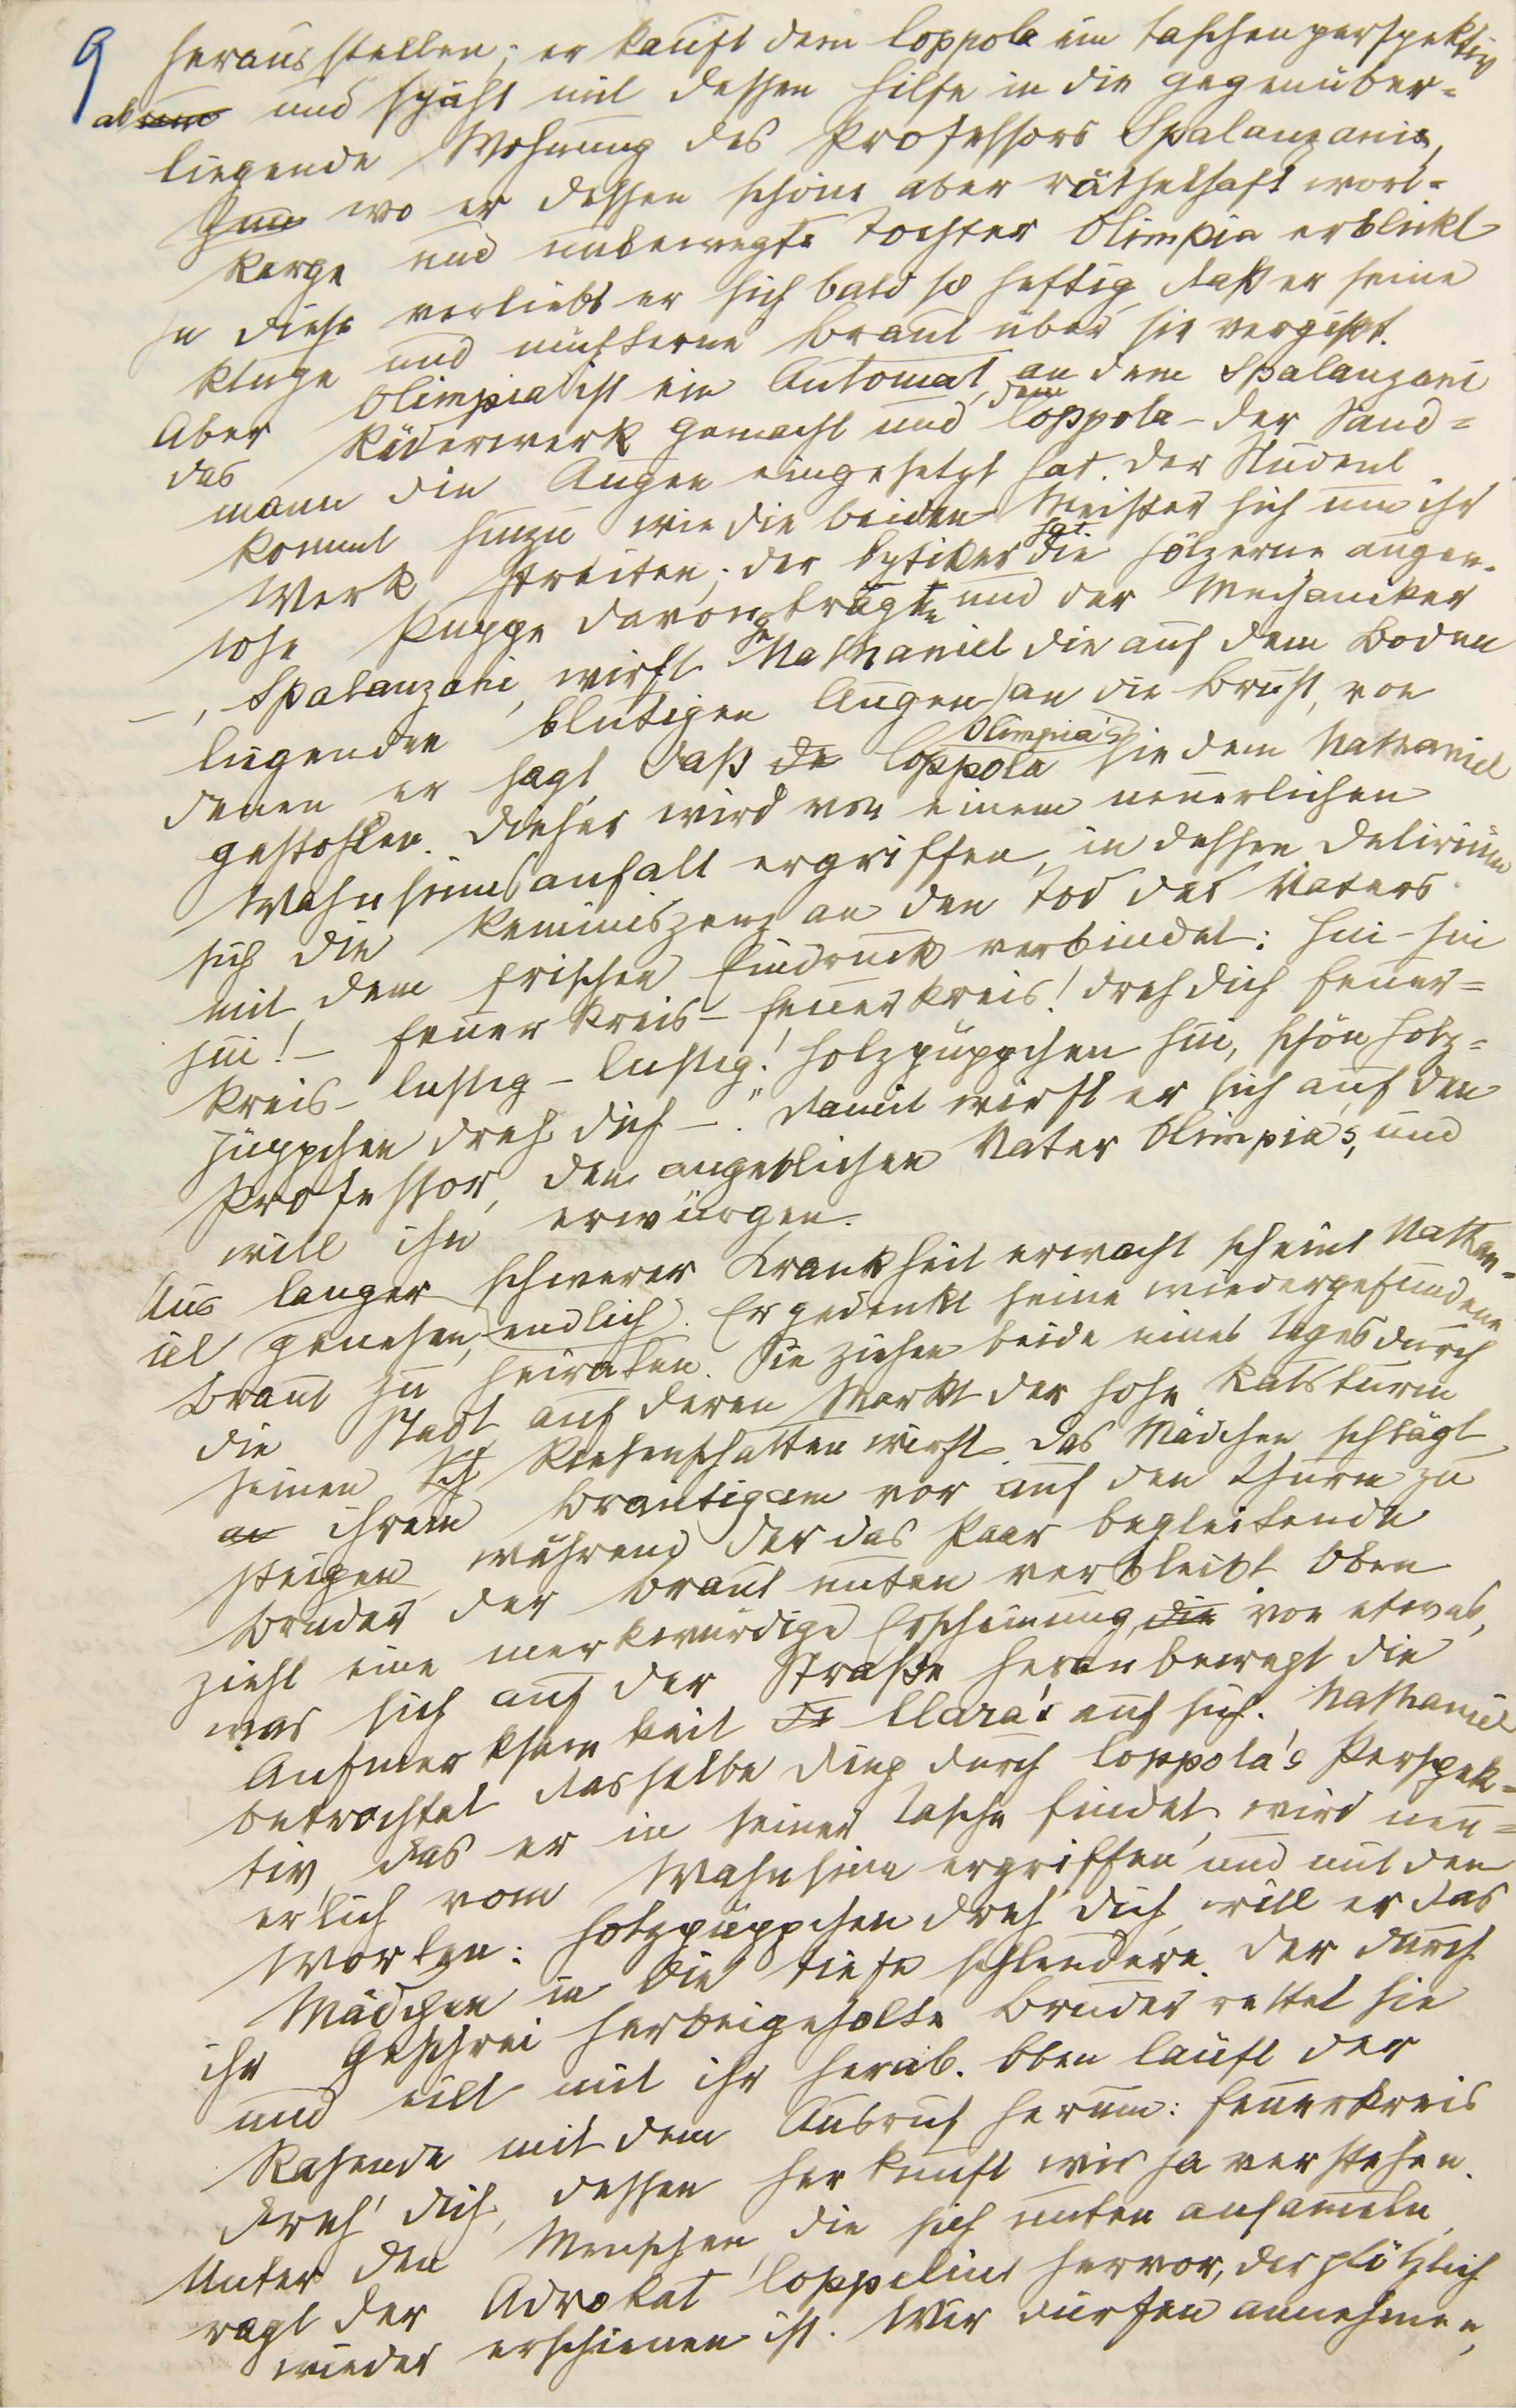 9 herausstellen; er kauft dem Coppola ein Taschenperspektiv
ab und späht mit dessen Hilfe in die gegenüber=
liegende Wohnung des Professors Spalanzani,
wo er dessen schöne aber räthselhaft wort=
karge und unbewegte Tochter Olimpia erblickt
In diese verliebt er sich bald so heftig, daß er seine
kluge und nüchterne Braut über sie vergißt.
Aber Olimpia ist ein Automat, an dem Spalanzani
das Räderwerk gemacht und dem Coppola – der Sand=
mann die Augen eingesetzt hat. Der Student
kommt hinzu wie die beiden Meister sich um ihr
Werk streiten; der Optiker hat die hölzerne augen-
lose Puppe davongetragen und der Mechaniker
–, Spalanzani, wirft Nathaniel die auf dem Boden
liegenden blutigen Augen Olimpia's an die Brust, von
denen er sagt, daß Coppola sie dem Nathaniel
gestohlen. Dieser wird von einem neuerlichen
Wahnsinnsanfall ergriffen, in dessen Delirium
sich die Reminiszenz an den Tod des Vaters
mit dem frischen Eindruck verbindet: Hui-hui
hui! – Feuerkreis – Feuerkreis! dreh dich Feuer=
kreis – lustig – lustig! Holzpüppchen hui, schön Holz=
püppchen dreh dich –." Damit wirft er sich auf den
Professor, den angeblichen Vater Olimpia's, und
will ihn erwürgen.
Aus langer schwerer Krankheit erwacht scheint Nathan=
iel genesen, endlich. Er gedenkt seine wiedergefundene
Braut zu heiraten. Sie ziehen beide eines Tages durch
die Stadt, auf deren Markt der hohe Ratsturm
seinen Riesenschatten wirft. Das Mädchen schlägt
ihrem Bräutigam vor auf den Thurm zu
steigen während der das Paar begleitende
Bruder der Braut unten verbleibt Oben
zieht eine merkwürdige Erscheinung von etwas,
was sich auf der Straße heran bewegt die
Aufmerksamkeit Clara's auf sich. Nathaniel
betrachtet dasselbe Ding durch Coppola's Perspek=
tiv, das er in seiner Tasche findet, wird neu=
erlich vom Wahnsinn ergriffen und mit den
Worten: Holzpüppchen dreh' dich, will er das
Mädchen in die Tiefe schleudern. Der durch
ihr Geschrei herbeigeholte Bruder rettet sie
und eilt mit ihr herab. Oben läuft der
Rasende mit dem Ausruf herum: Feuerkreis
dreh' dich, dessen Herkunft wir ja verstehen.
Unter den Menschen, die sich unten ansammeln
ragt der Advokat Coppelius hervor, der plötzlich
wieder erschienen ist. Wir dürfen annehmen,